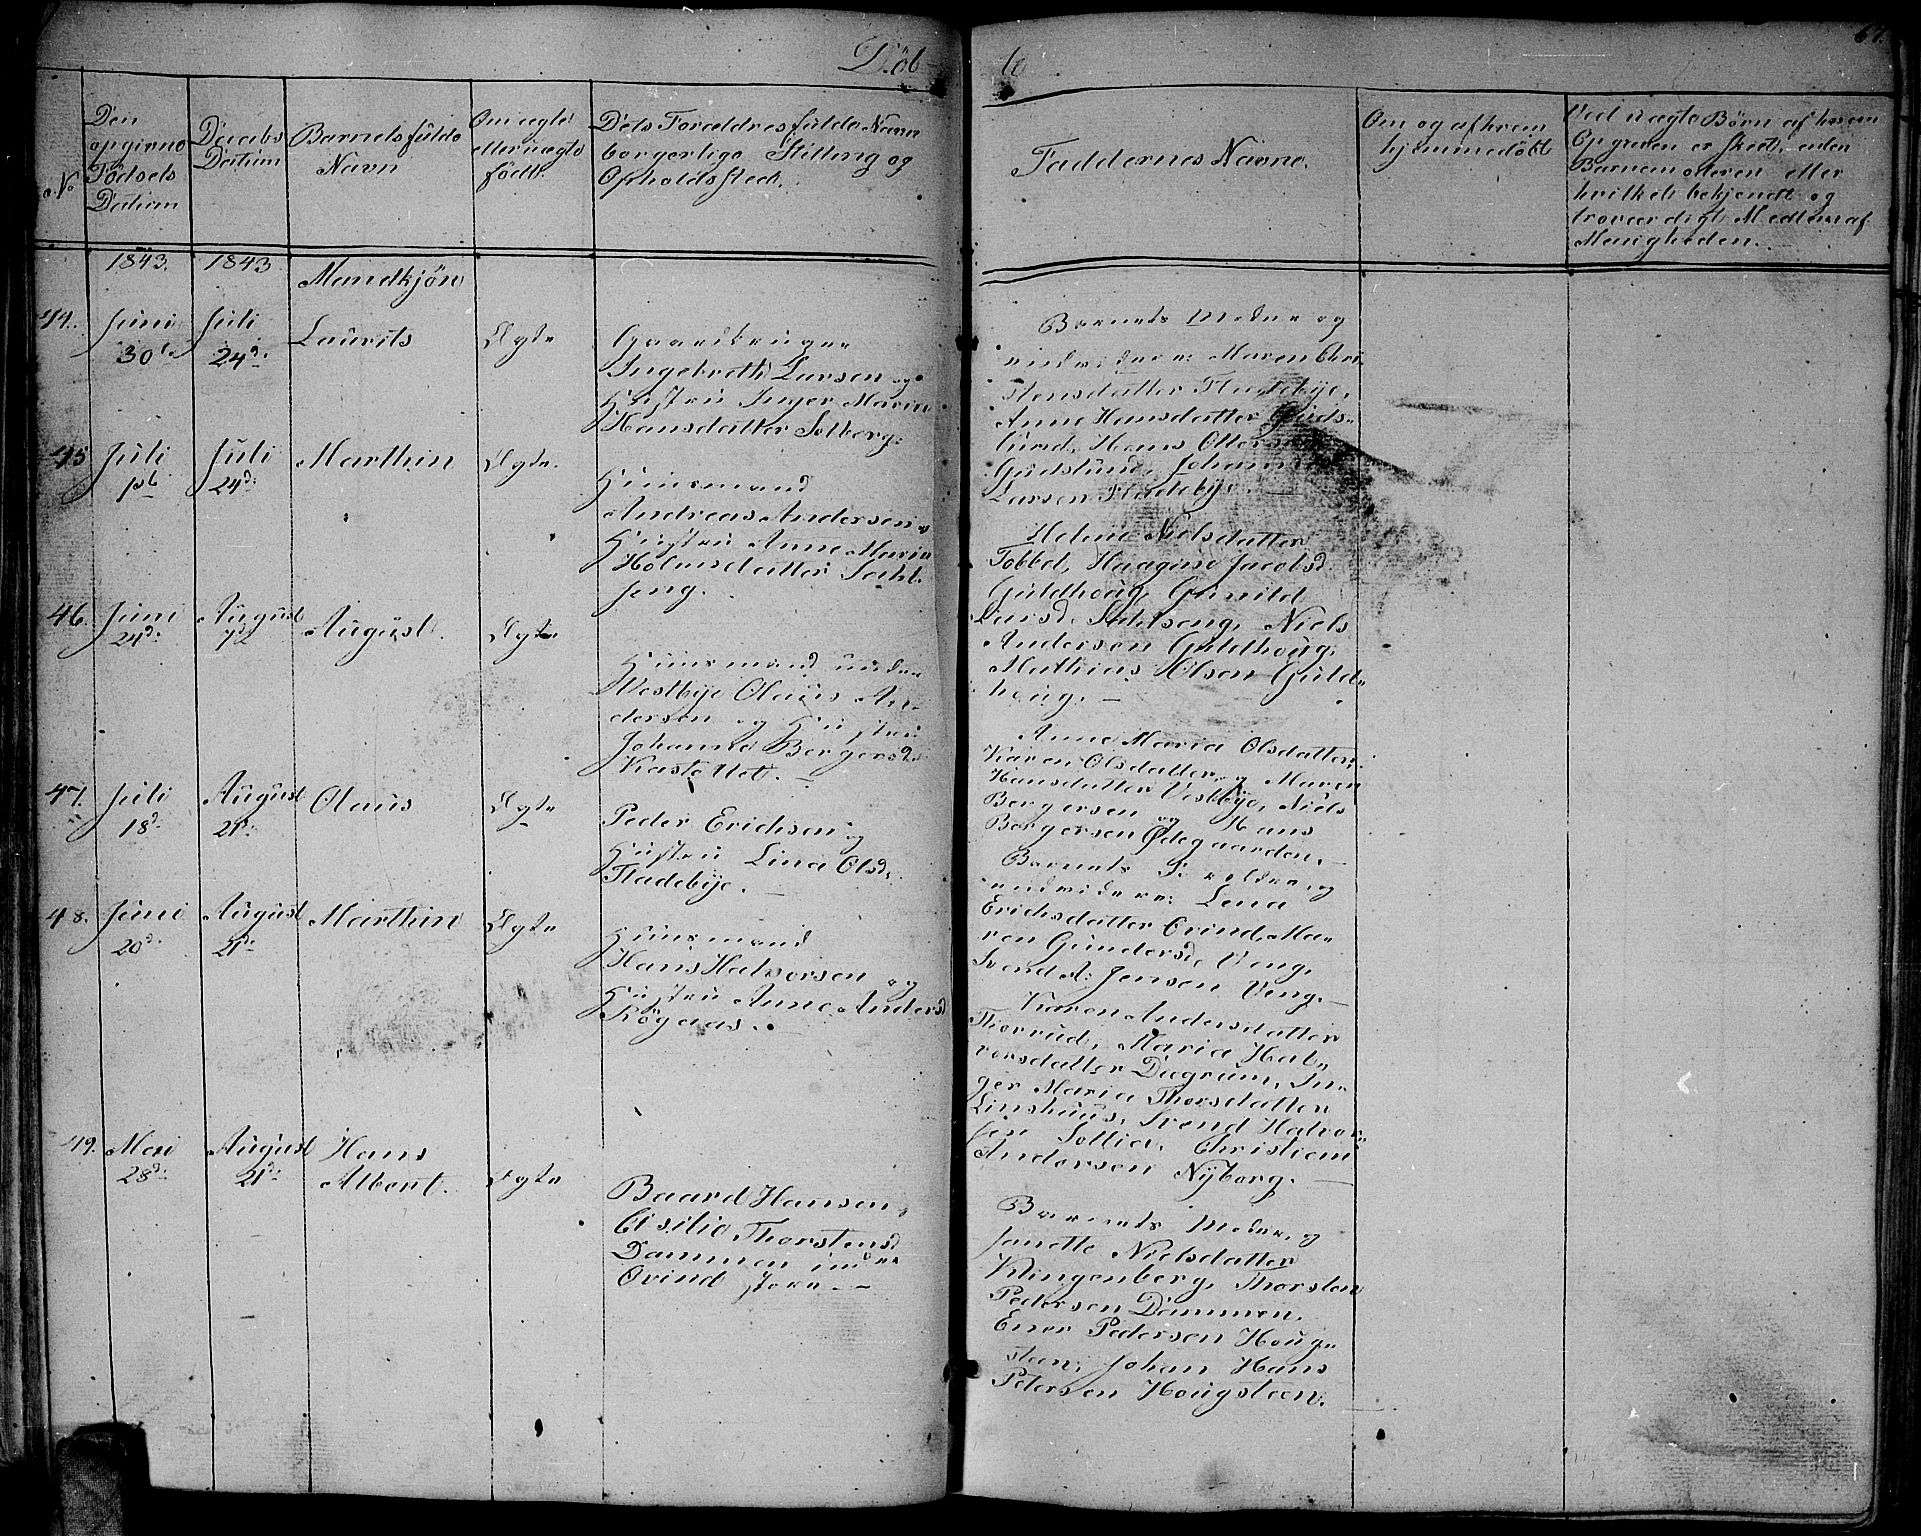 67.
Döb te
No
Den
opgivne
Födsels
Datum
Daabs
Datum
Barnets fulde
Navn
Om ægte
eller uægte
födt.
Dets Forældres fulde Navn
borgerlige Stilling og
Opholdssted.
Faddernes Navne.
Om og af hvem
hjemmedöbt
Ved uægte Börn af hvem
Opgaven er skeet, enten
Barnemoderen eller
hvilket bekjendt og
troværdigt Medlem af
Menigheden.
1843. 1843
Mandkjön
44. Juni 30te Juli 24d: Laurits Ægte
Gaardbruger
Ingebreth Larsen og
Hustru Inger Maria
Hansdatter Solberg.
Barnets Moder og
videre: Maren Chri-
stensdatter Fladebÿe,
Anne Hansdatter Guds-
lund, Hans Ottersen
Gudslund, Johannes
Larsen Fladebÿe.
45 Juli 1st Juli 24d: Marthin Ægte.
Huusmand
Andreas Andersen og
Hustru Anne Maria
Holmsdatter Sahl-
seng.
Helene Nielsdatter
Tobbel, Haagine Jacobsd.
Guldhoug, Gunild
Larsd. Sahlseng, Niels
Andersen Guldhoug,
Mathias Olsen Guld-
houg. —
46. Juni 24d: August 7d August. Ægte
Huusmand under
Westbÿe Olaus An-
dersen og Hustru
Johanne Bergersd.
Kastellet. —
Anne Maria Olsdatter,
Karen Olsdatter, og Maren
Hansdatter Vestbÿe, Niels
Bergersen og Hans
Bergersen Ødegaarden. —
47. Juli 18d: August 21d: Olaus Ægte
Peder Erichsen og
Hustru Lina Olsd.
Fladebÿe. —
Barnets Forældre og
endvidere: Lena
Erichsdatter Ovind, Ma-
ren Gundersd. Veng,
Svend A: Jensen Veng. —
48. Juni 20d: August 21d: Marthin Ægte
Huusmand
Hans Halvorsen og
Hustru Anne Andersd
Rögaas. —
Karen Andersdatter
Thorrud, Maria Hal-
vorsdatter Dægrum, In-
ger Maria Thorsdatter
Linshuus, Svend Halvor-
sen Sollia, Christian
Andersen Nÿborg. —
49. Mai 28d: August 21d: Hans
Albert. Ægte
Baard Hansen,
Cisilia Thorstensd
Dammen under
Ovind store. —
Barnets Moder, og
Janette Nielsdatter
Klingenberg, Thorsten
Pedersen Dammen,
Ener Pedersen Houg-
steen, Johan Hans
Petersen Hougsteen. —